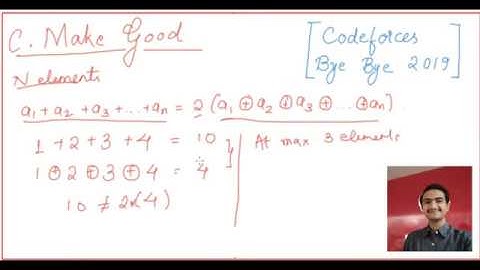 C. Make Good
[ Codeforces
Bye Bye 2019 ]
N elements
a₁ + a₂ + a₃ + ... + aₙ = 2 (a₁ ⊕ a₂ ⊕ a₃ ⊕ ... ⊕ aₙ)
1 + 2 + 3 + 4 = 10
1 ⊕ 2 ⊕ 3 ⊕ 4 = 4
10 ≠ 2×(4)
At max 3 elements